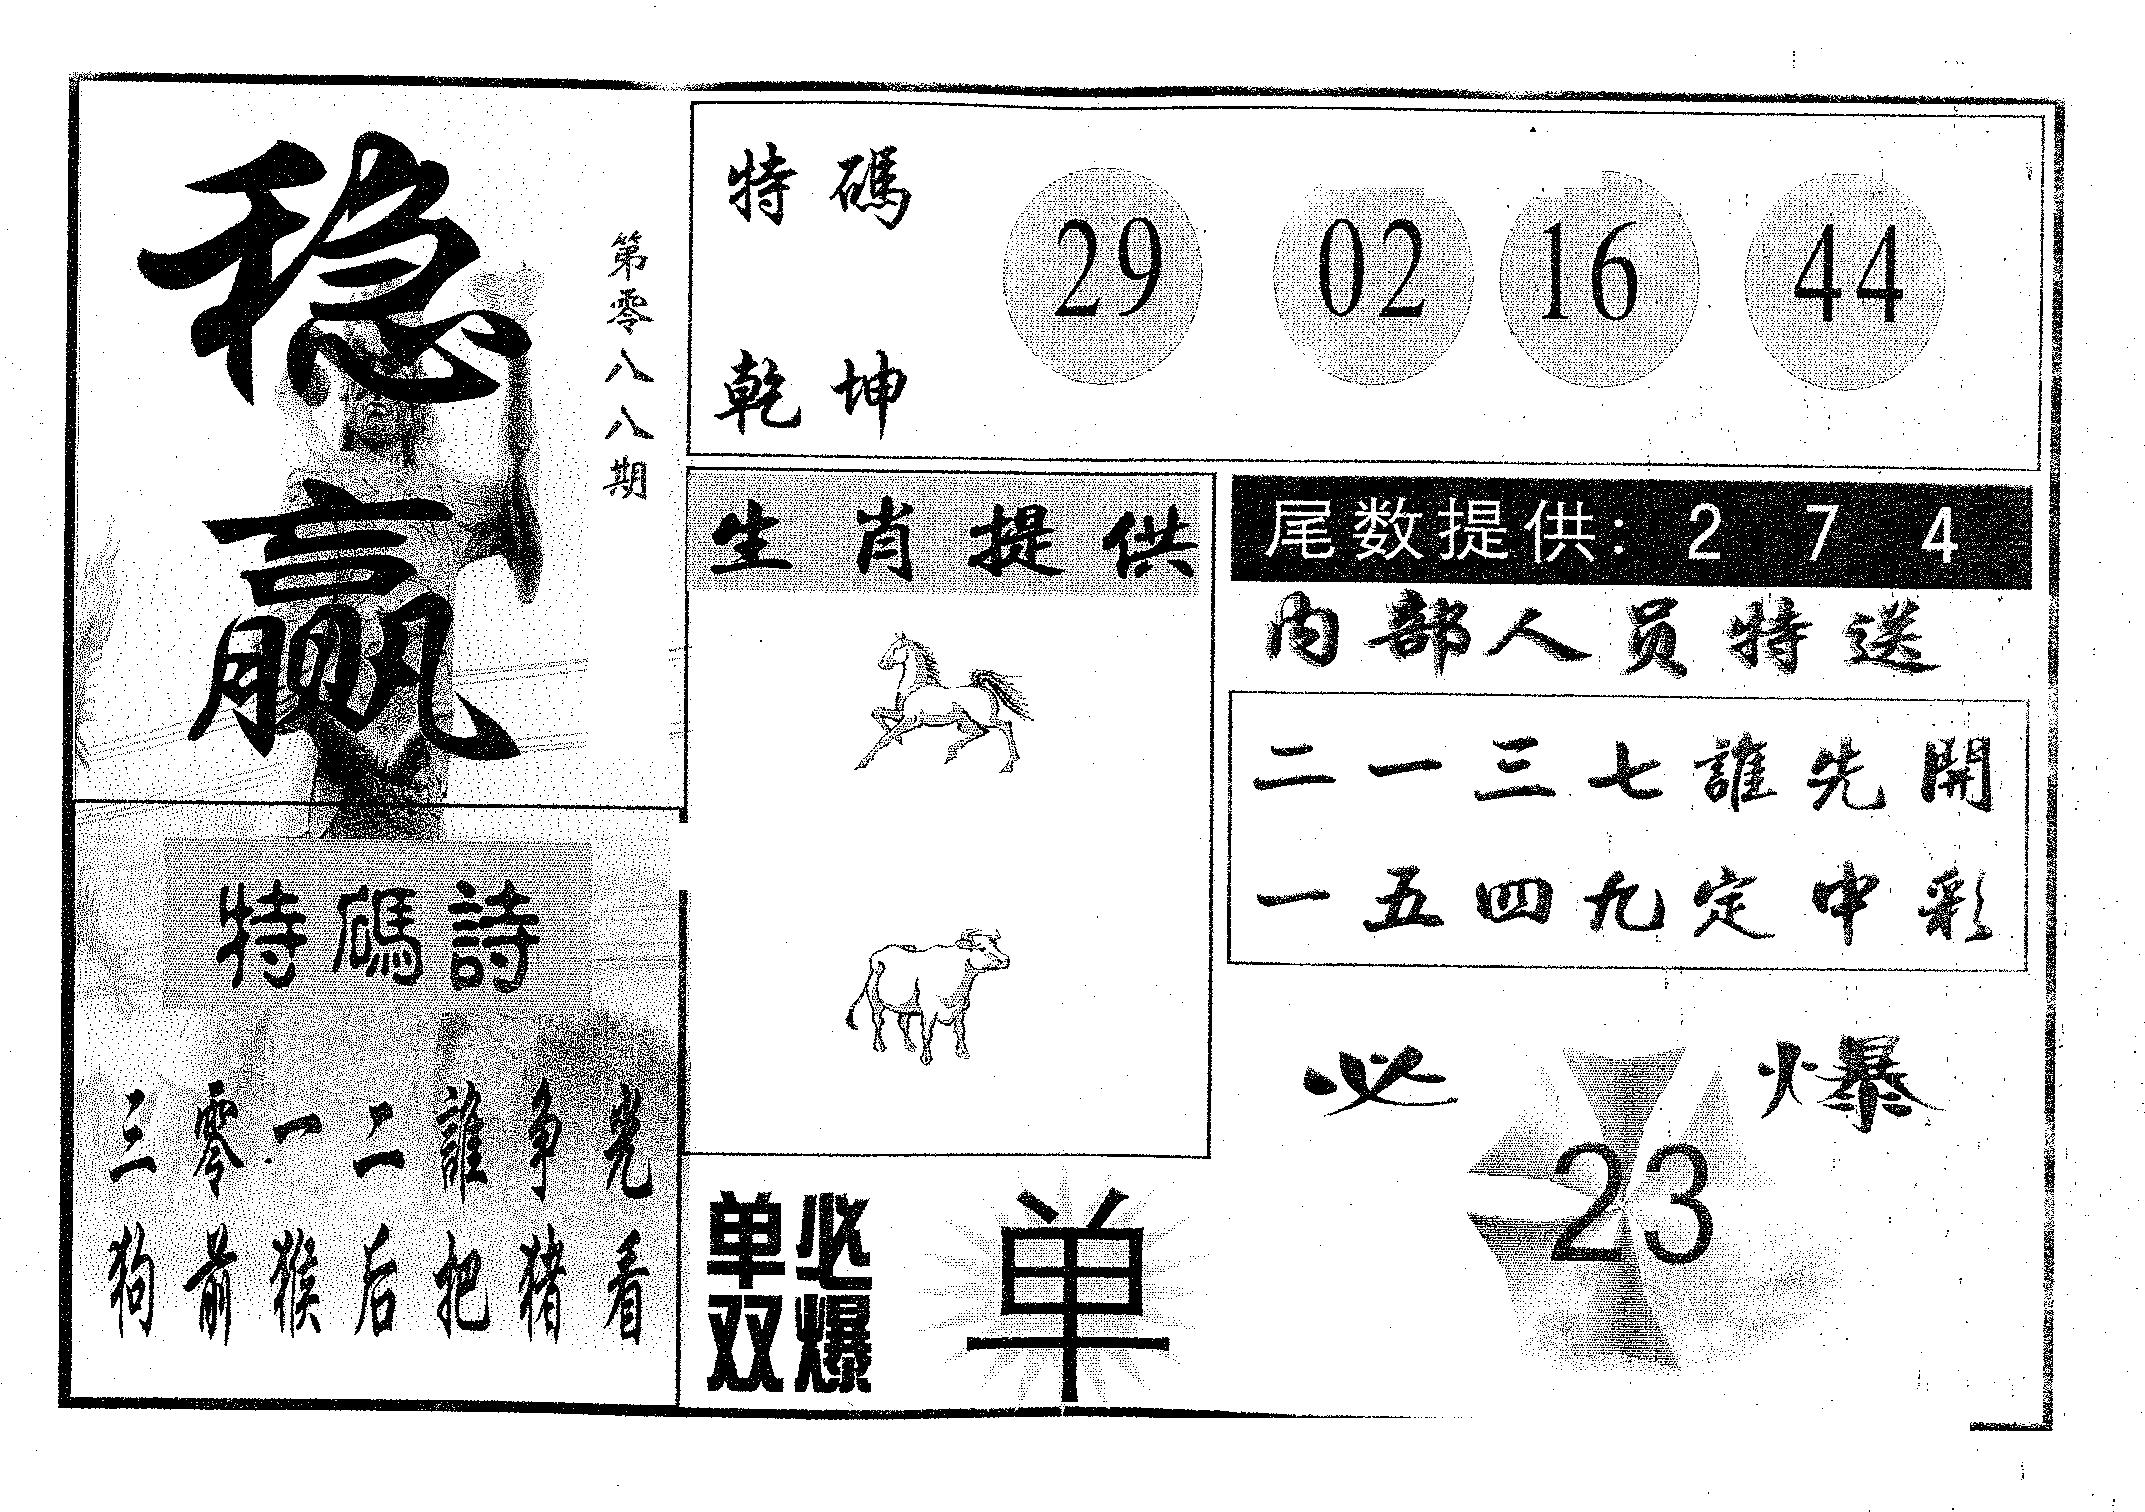 稳赢
第零八八期
特碼
乾坤
29 02 16 44
生肖提供
尾数提供: 2 7 4
内部人员特送
二一三七誰先開
一五四九定中彩
特碼詩
三零一二誰争光
狗前猴后把猪看
单双
必爆
单
必爆
23